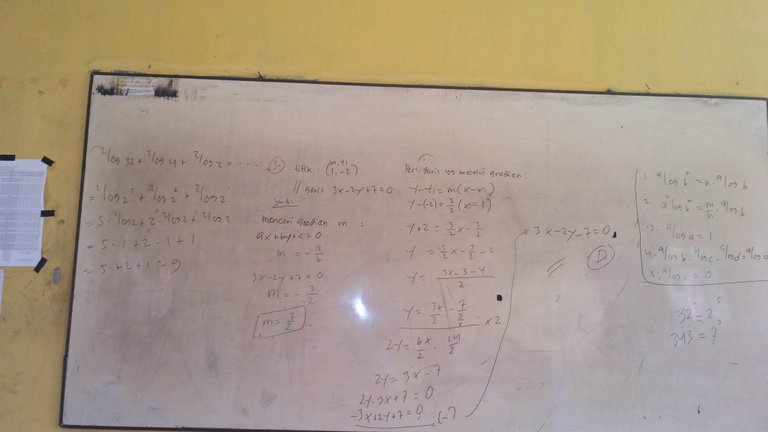 ²log 32 + ²log 4 + ²log 2 = ....
= ²log 2⁵ + ²log 2² + ²log 2
= 5 · ²log 2 + 2 · ²log 2 + ²log 2
= 5 · 1 + 2 · 1 + 1
= 5 + 2 + 1 = 9
titik (1, -2)
// garis 3x-2y+7=0
mencari gradien m :
ax+by+c=0
m = -a/b
3x-2y+7=0
m = -3/-2
m = 3/2
Pers. garis yg melalui gradien :
y-y1 = m(x-x1)
y-(-2) = 3/2 (x-1)
y+2 = 3/2 x - 3/2
y = 3/2 x - 3/2 - 2
y = 3x-3-4 / 2
y = 3x/2 - 7/2
x 2
2y = 6x/2 - 14/2
2y = 3x-7
2y-3x+7=0
-3x+2y+7=0 (-)
3x-2y-7=0
D
1. ᵃlog bⁿ = n · ᵃlog b
3. ᵃlog a = 1
5. ᵃlog 1 = 0
32 = 2⁵
343 = 7³